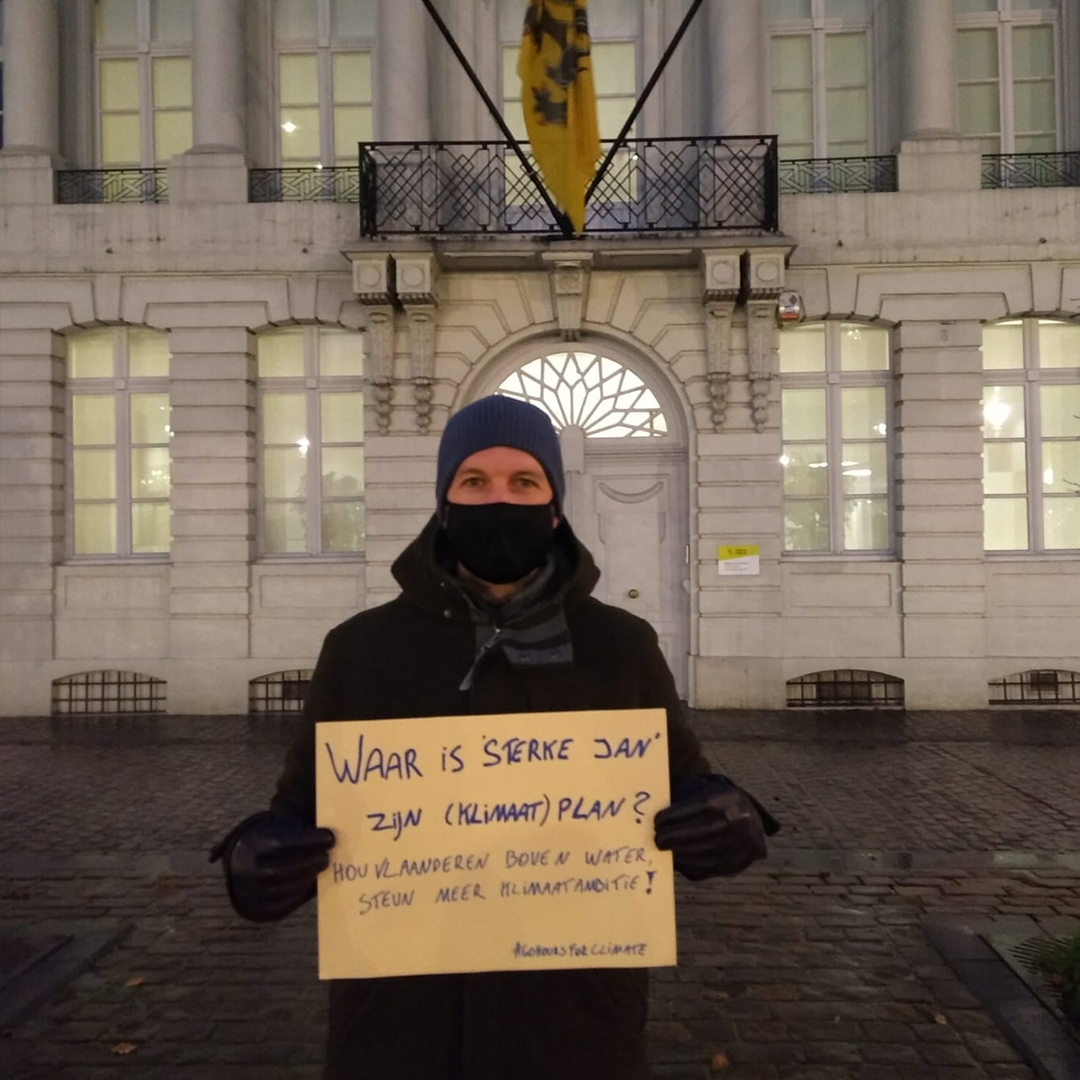 WAAR iS 'STERKE JAN'
ZIJN (KLIMAAT) PLAN?
HOU VLAANDEREN BOVEN WATER,
STEUN MEER KLIMAATAMBITIE!
#60HOURSFORCLIMATE